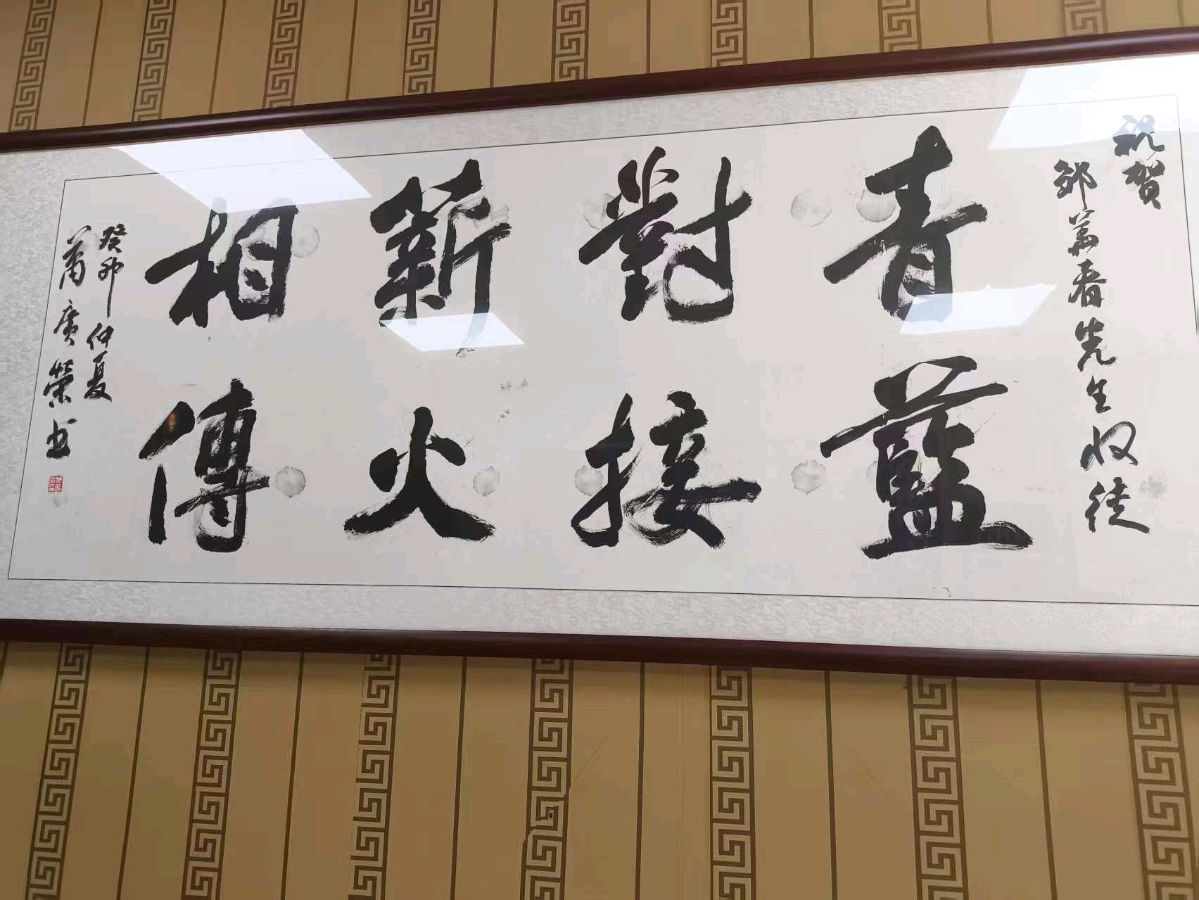 祝贺
邹春先生收徒
青藍
對接
薪火
相傳
癸卯仲夏
廣榮书